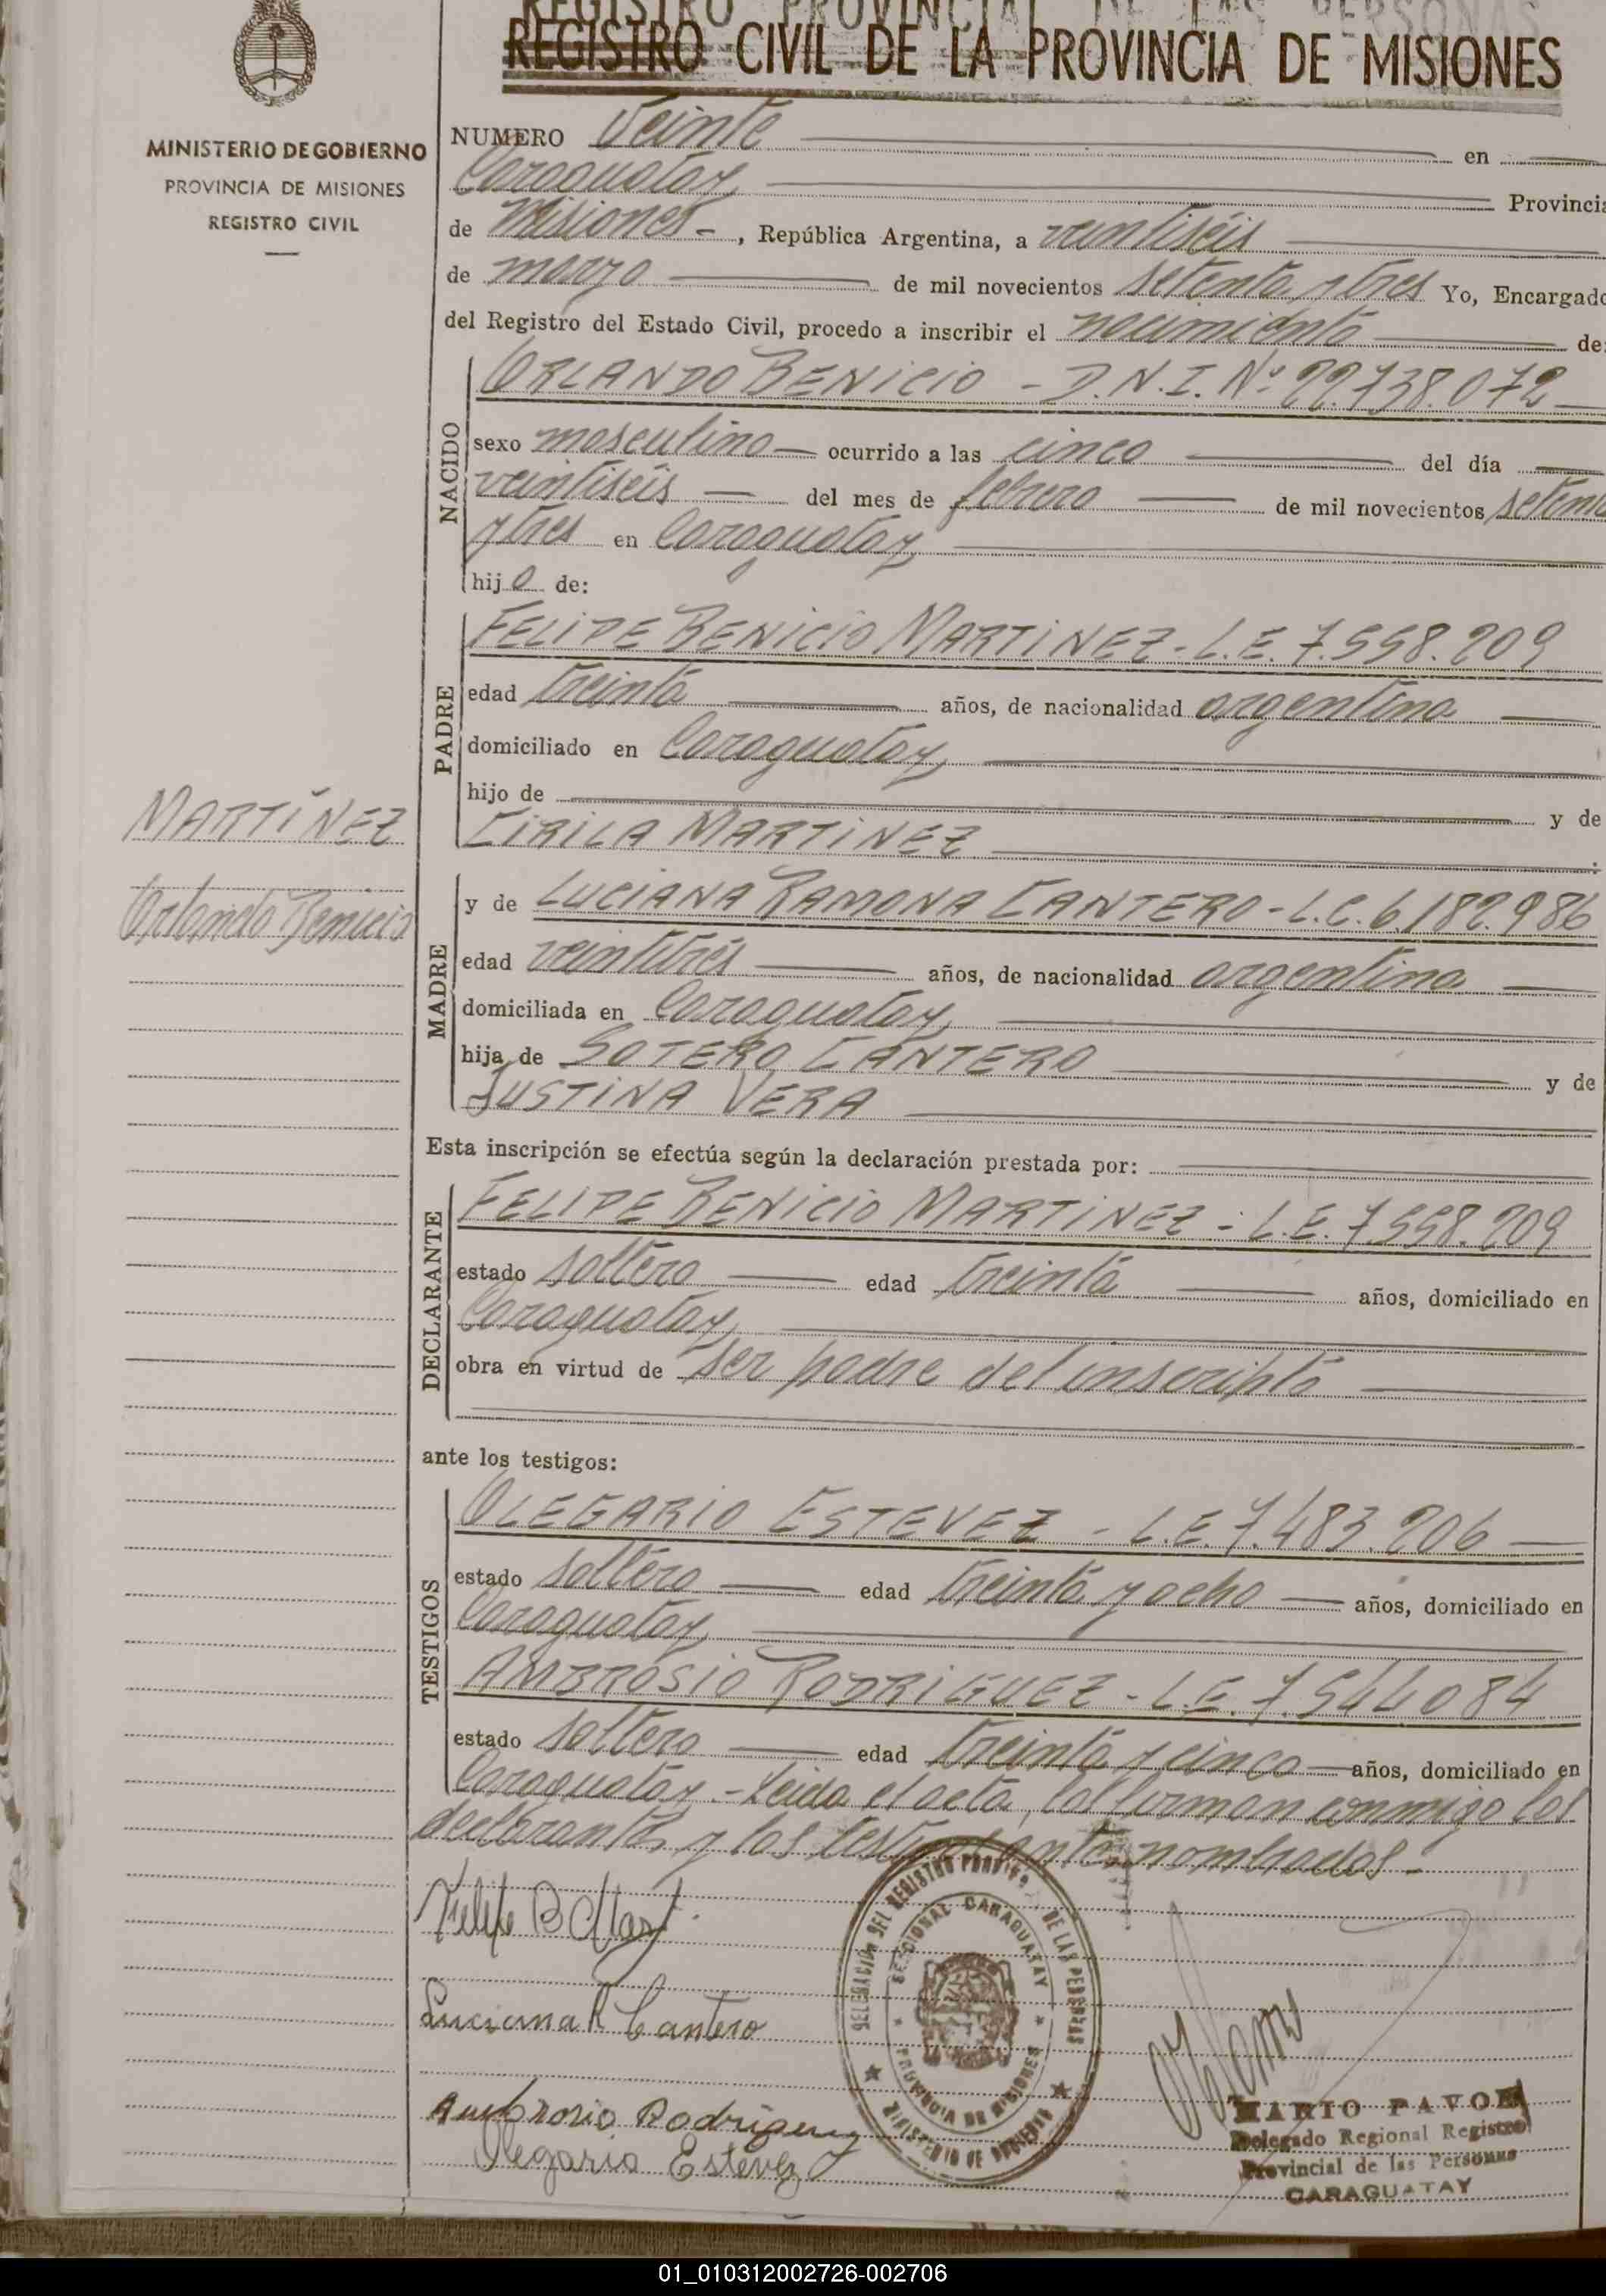 REGISTRO PROVINCIAL DE LAS PERSONAS
REGISTRO CIVIL DE LA PROVINCIA DE MISIONES
MINISTERIO DE GOBIERNO
PROVINCIA DE MISIONES
REGISTRO CIVIL
NUMERO Veinte en
Caraguatay Provincia
de Misiones , República Argentina, a veintiséis
de marzo de mil novecientos setenta y tres Yo, Encargado
del Registro del Estado Civil, procedo a inscribir el nacimiento de:
NACIDO
ORLANDO BENICIO - D.N.I. Nº 22.738.072
sexo masculino ocurrido a las cinco del día
veintiséis del mes de febrero de mil novecientos setenta
y tres en Caraguatay
hijo de:
PADRE
FELIPE BENICIO MARTINEZ - L.E. 7.558.209
edad treinta años, de nacionalidad argentina
domiciliado en Caraguatay
hijo de y de
CIRILA MARTINEZ
MARTÍNEZ
Orlando Benicio
MADRE
y de LUCIANA RAMONA CANTERO - L.C. 6.182.986
edad veintitrés años, de nacionalidad argentina
domiciliada en Caraguatay
hija de SOTERO CANTERO y de
JUSTINA VERA
Esta inscripción se efectúa según la declaración prestada por:
DECLARANTE
FELIPE BENICIO MARTINEZ - L.E. 7.558.209
estado soltero edad treinta años, domiciliado en
Caraguatay
obra en virtud de ser padre del inscripto
ante los testigos:
TESTIGOS
OLEGARIO ESTEVEZ - L.E. 7.483.206
estado soltero edad treinta y ocho años, domiciliado en
Caraguatay
AMBROSIO RODRIGUEZ - L.E. 7.544084
estado soltero edad treinta y cinco años, domiciliado en
Caraguatay.- Leida el acta, la firman conmigo los
declarantes y los testigos ante nombrados.-
Felipe B
Luciana R Cantero
Ambrosio Rodriguez
Olegario Estevez
DELEGACIÓN DEL REGISTRO PROV. DE LAS PERSONAS
SECCIONAL CARAGUATAY
PROVINCIA DE MISIONES
MINISTERIO DE GOBIERNO
MARIO PAVON
Delegado Regional Registro
Provincial de las Personas
CARAGUATAY
01_010312002726-002706